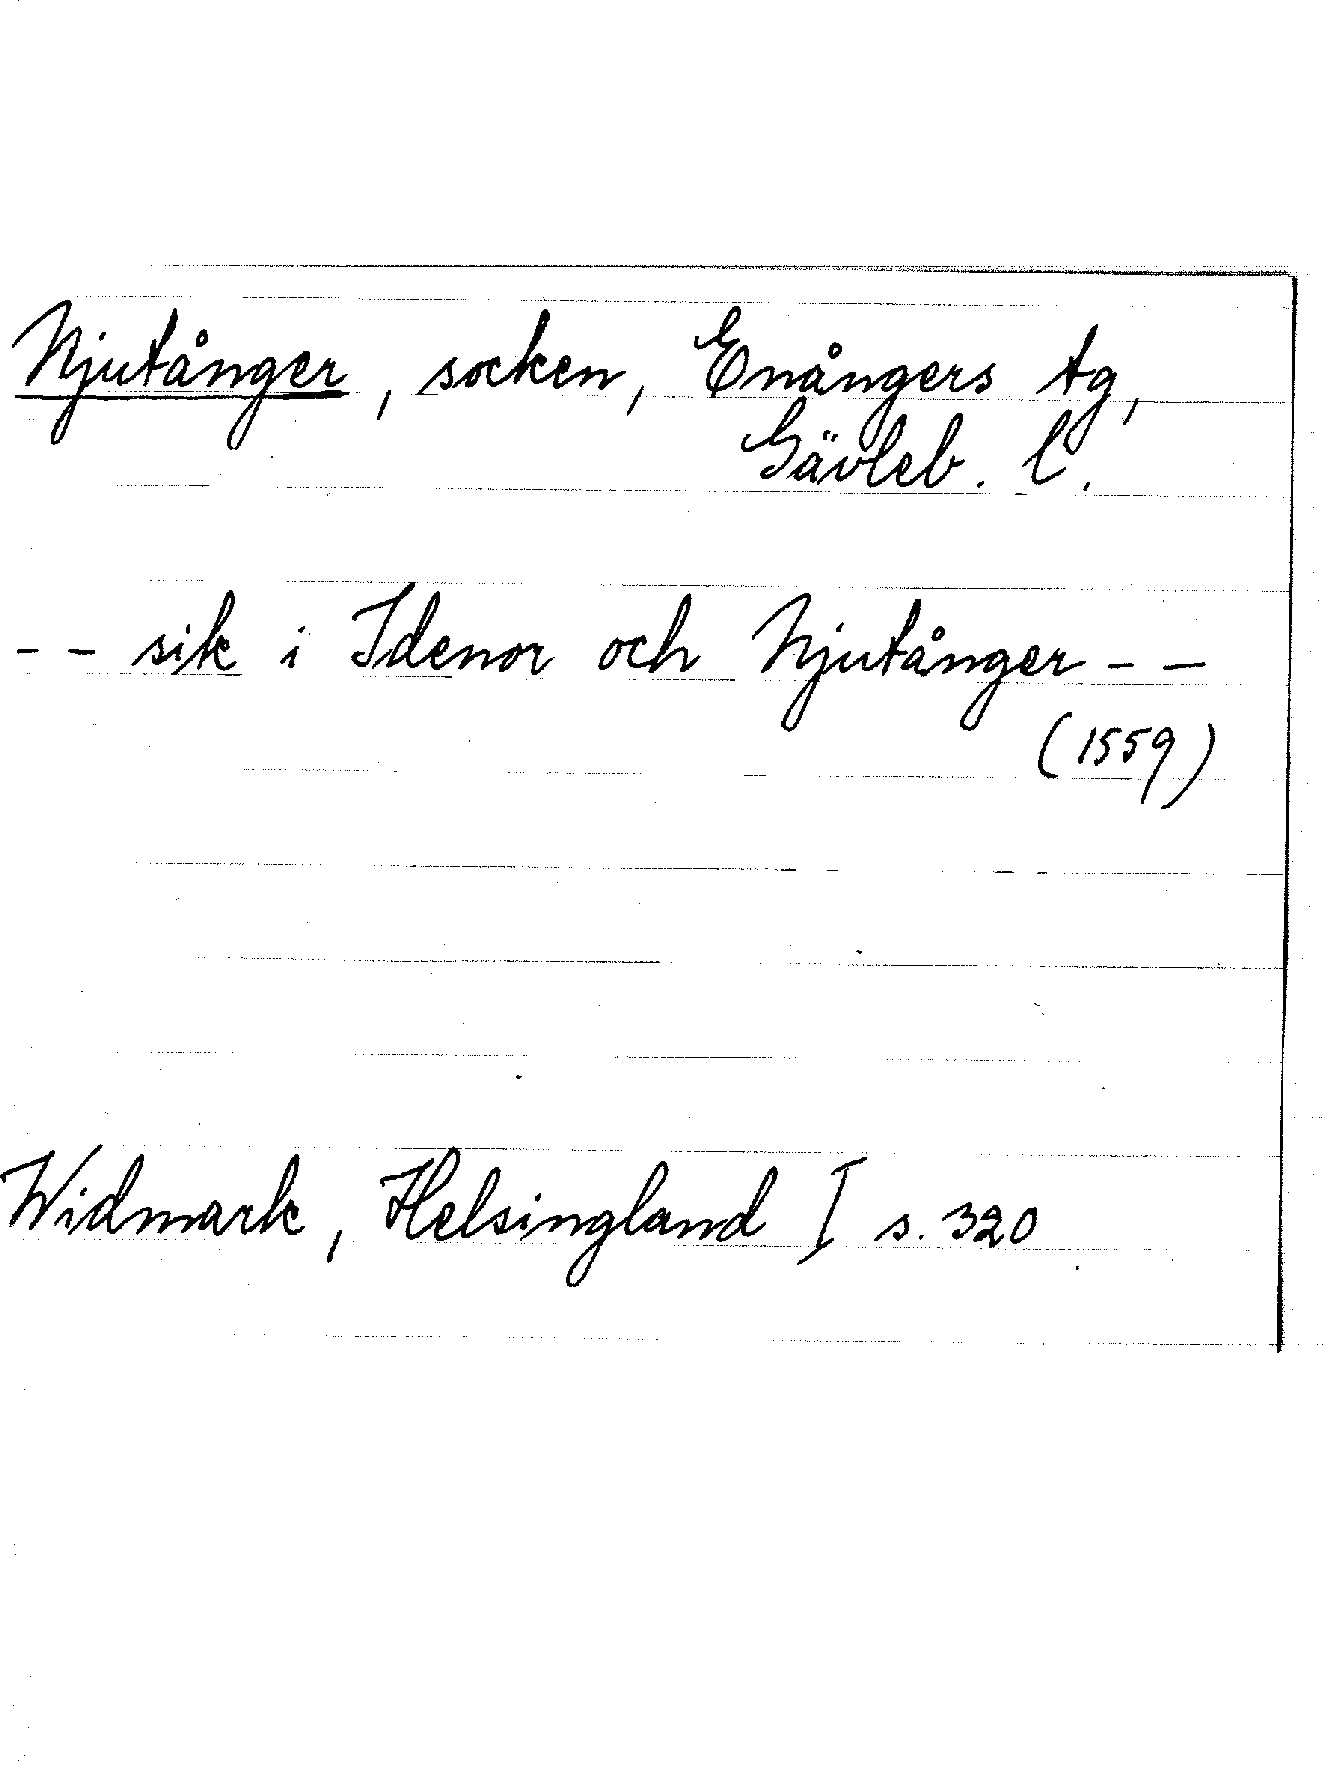 Njutånger, socken, Enångers tg,
Gävleb. l.
-- sik i Idenor och Njutånger --
(1559)
Widmark, Helsingland I s. 320